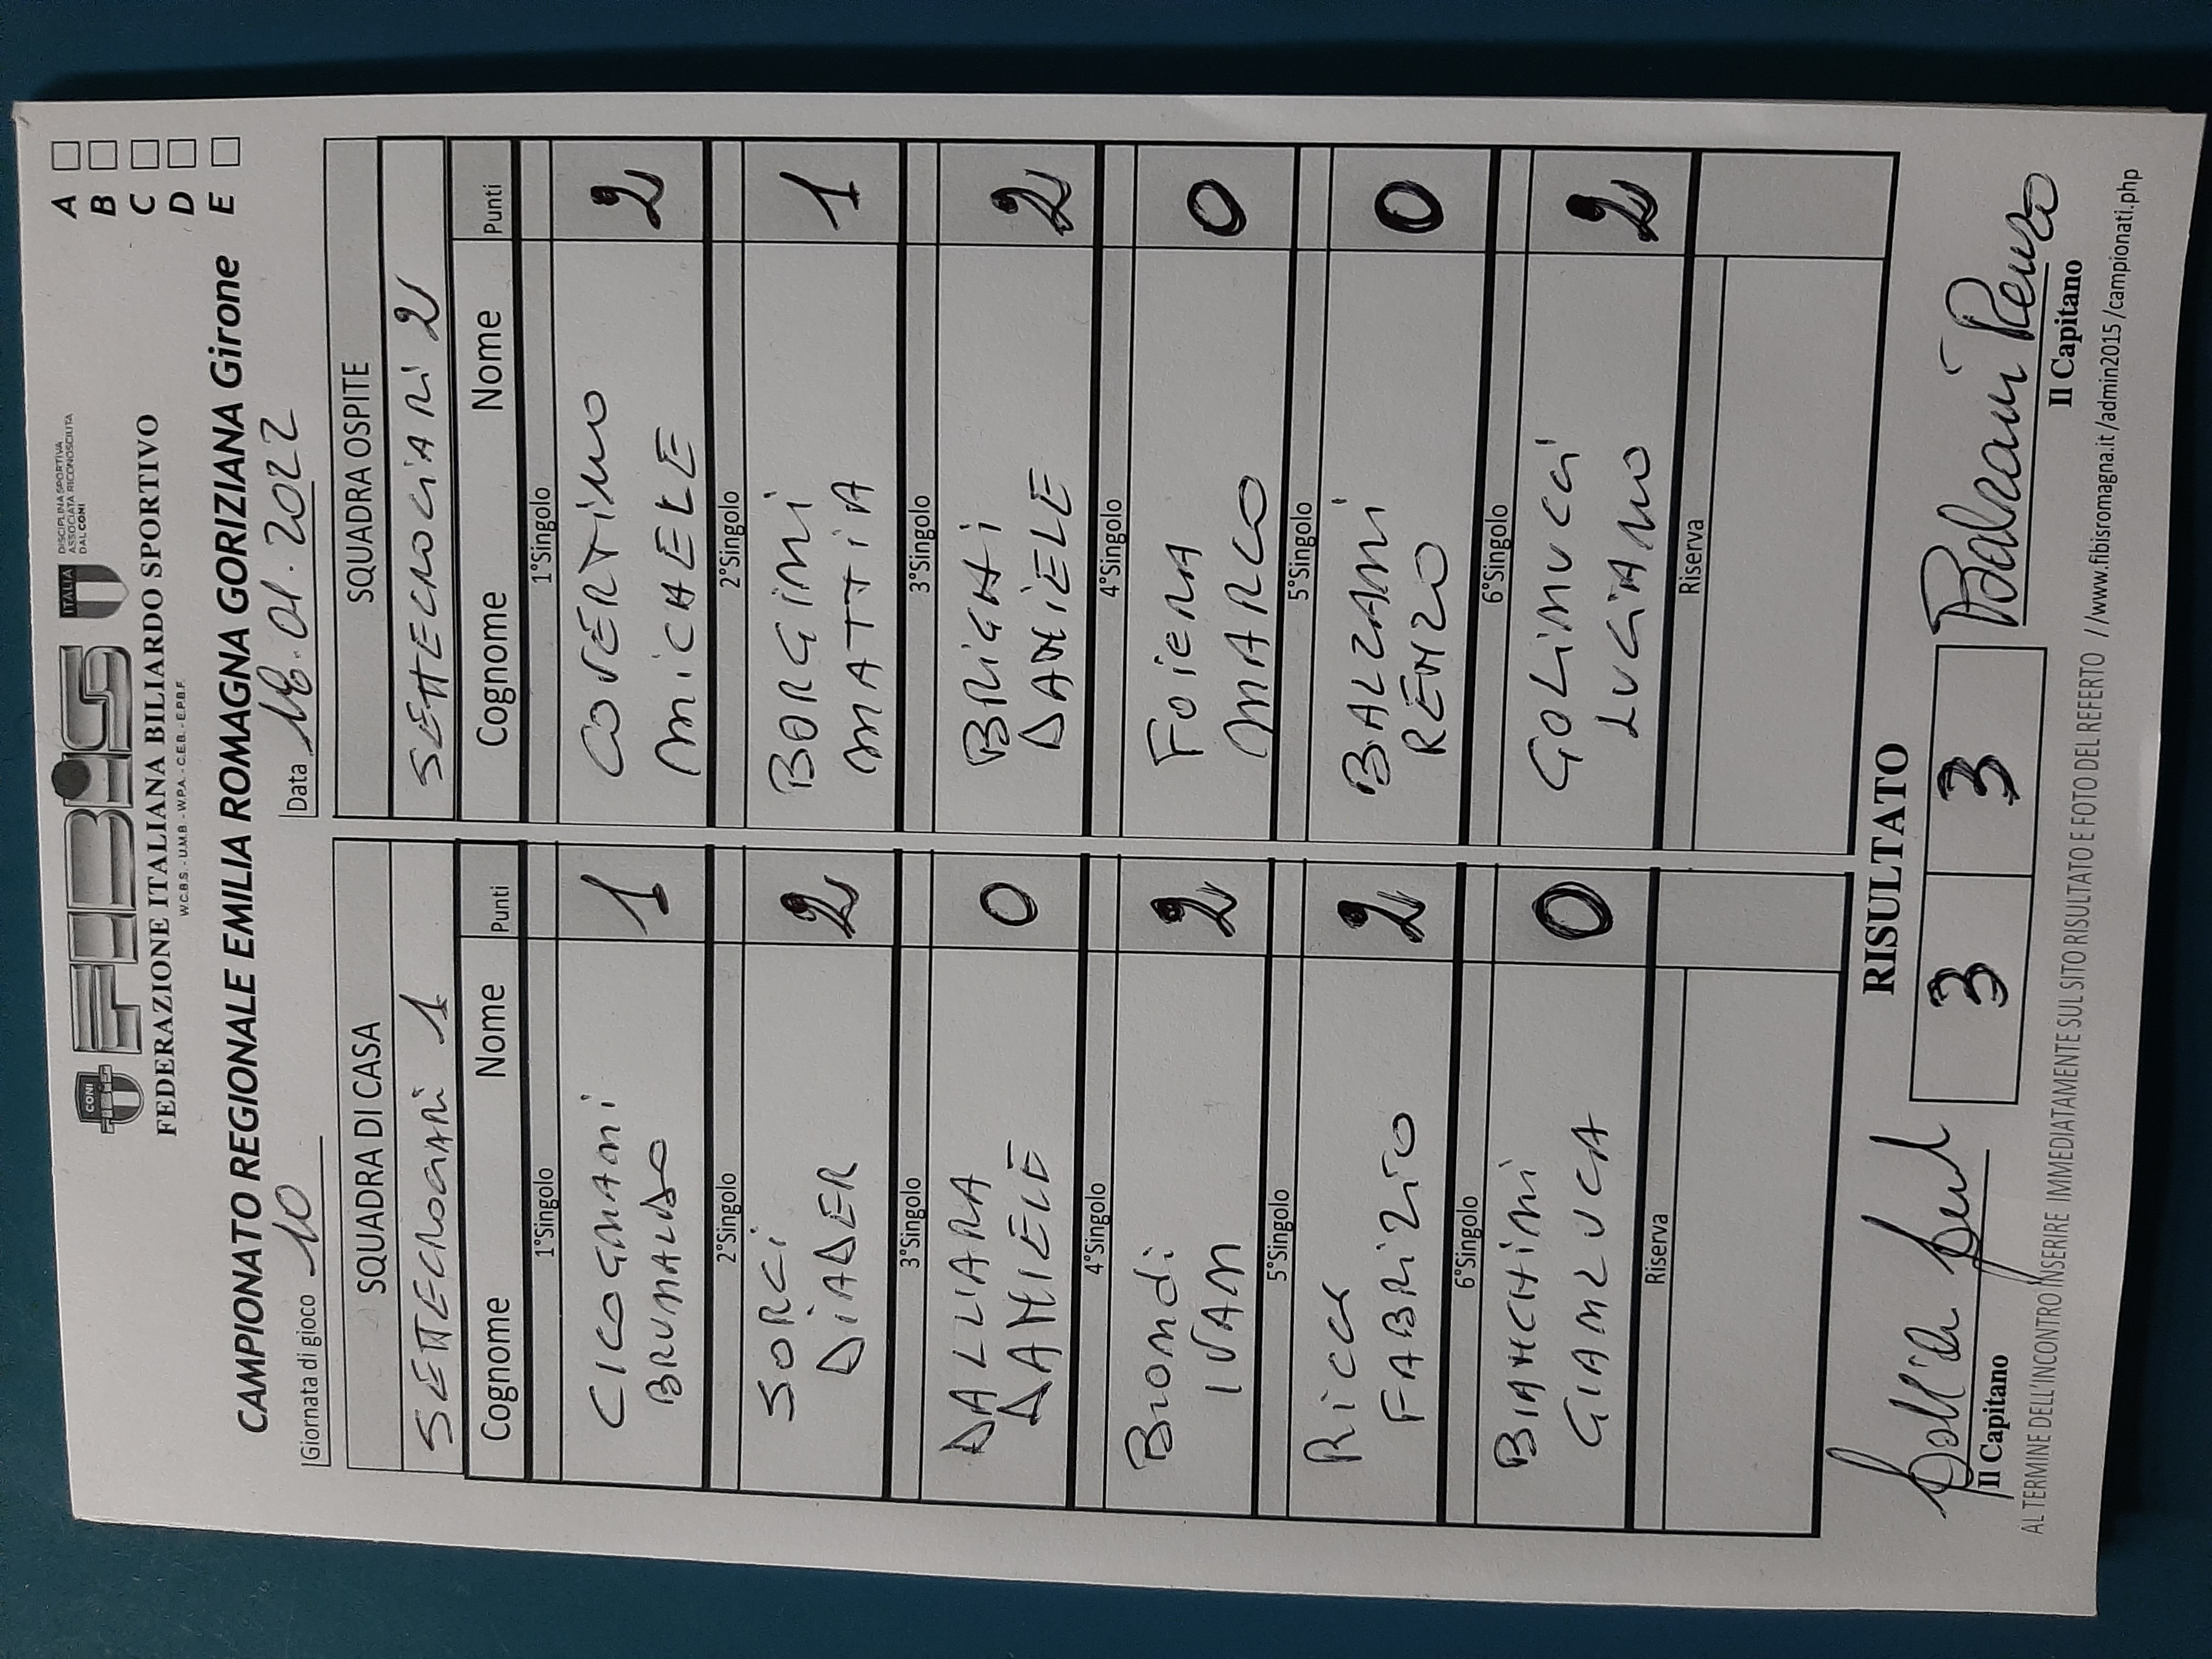 CONI
FIBiS
ITALIA
DISCIPLINA SPORTIVA
ASSOCIATA RICONOSCIUTA
DAL CONI
FEDERAZIONE ITALIANA BILIARDO SPORTIVO
W.C.B.S. - U.M.B. - W.P.A. - C.E.B. - E.P.B.F.
A
B
C
D
E
CAMPIONATO REGIONALE EMILIA ROMAGNA GORIZIANA Girone
Giornata di gioco 10
Data 18.01.2022
SQUADRA DI CASA
SETTECROCIARI 1
Cognome Nome Punti
1°Singolo
CICOGNANI
BRUNALDO 1
2°Singolo
SORCI
DIADER 2
3°Singolo
DALLIARA
DANIELE 0
4°Singolo
Biondi
IVAN 2
5°Singolo
Ricci
FABRIZIO 2
6°Singolo
BIANCHINI
GIANLUCA 0
Riserva
SQUADRA OSPITE
SETTECROCIARI 2
Cognome Nome Punti
1°Singolo
COVERTINO
MICHELE 2
2°Singolo
BORGINI
MATTIA 1
3°Singolo
BRIGHI
DANIELE 2
4°Singolo
FOIERA
MARCO 0
5°Singolo
BALZANI
RENZO 0
6°Singolo
GOLINUCCI
LUCIANO 2
Riserva
RISULTATO
3 3
Il Capitano
Balzani Renzo
Il Capitano
AL TERMINE DELL'INCONTRO INSERIRE IMMEDIATAMENTE SUL SITO RISULTATO E FOTO DEL REFERTO //www.fibisromagna.it/admin2015/campionati.php